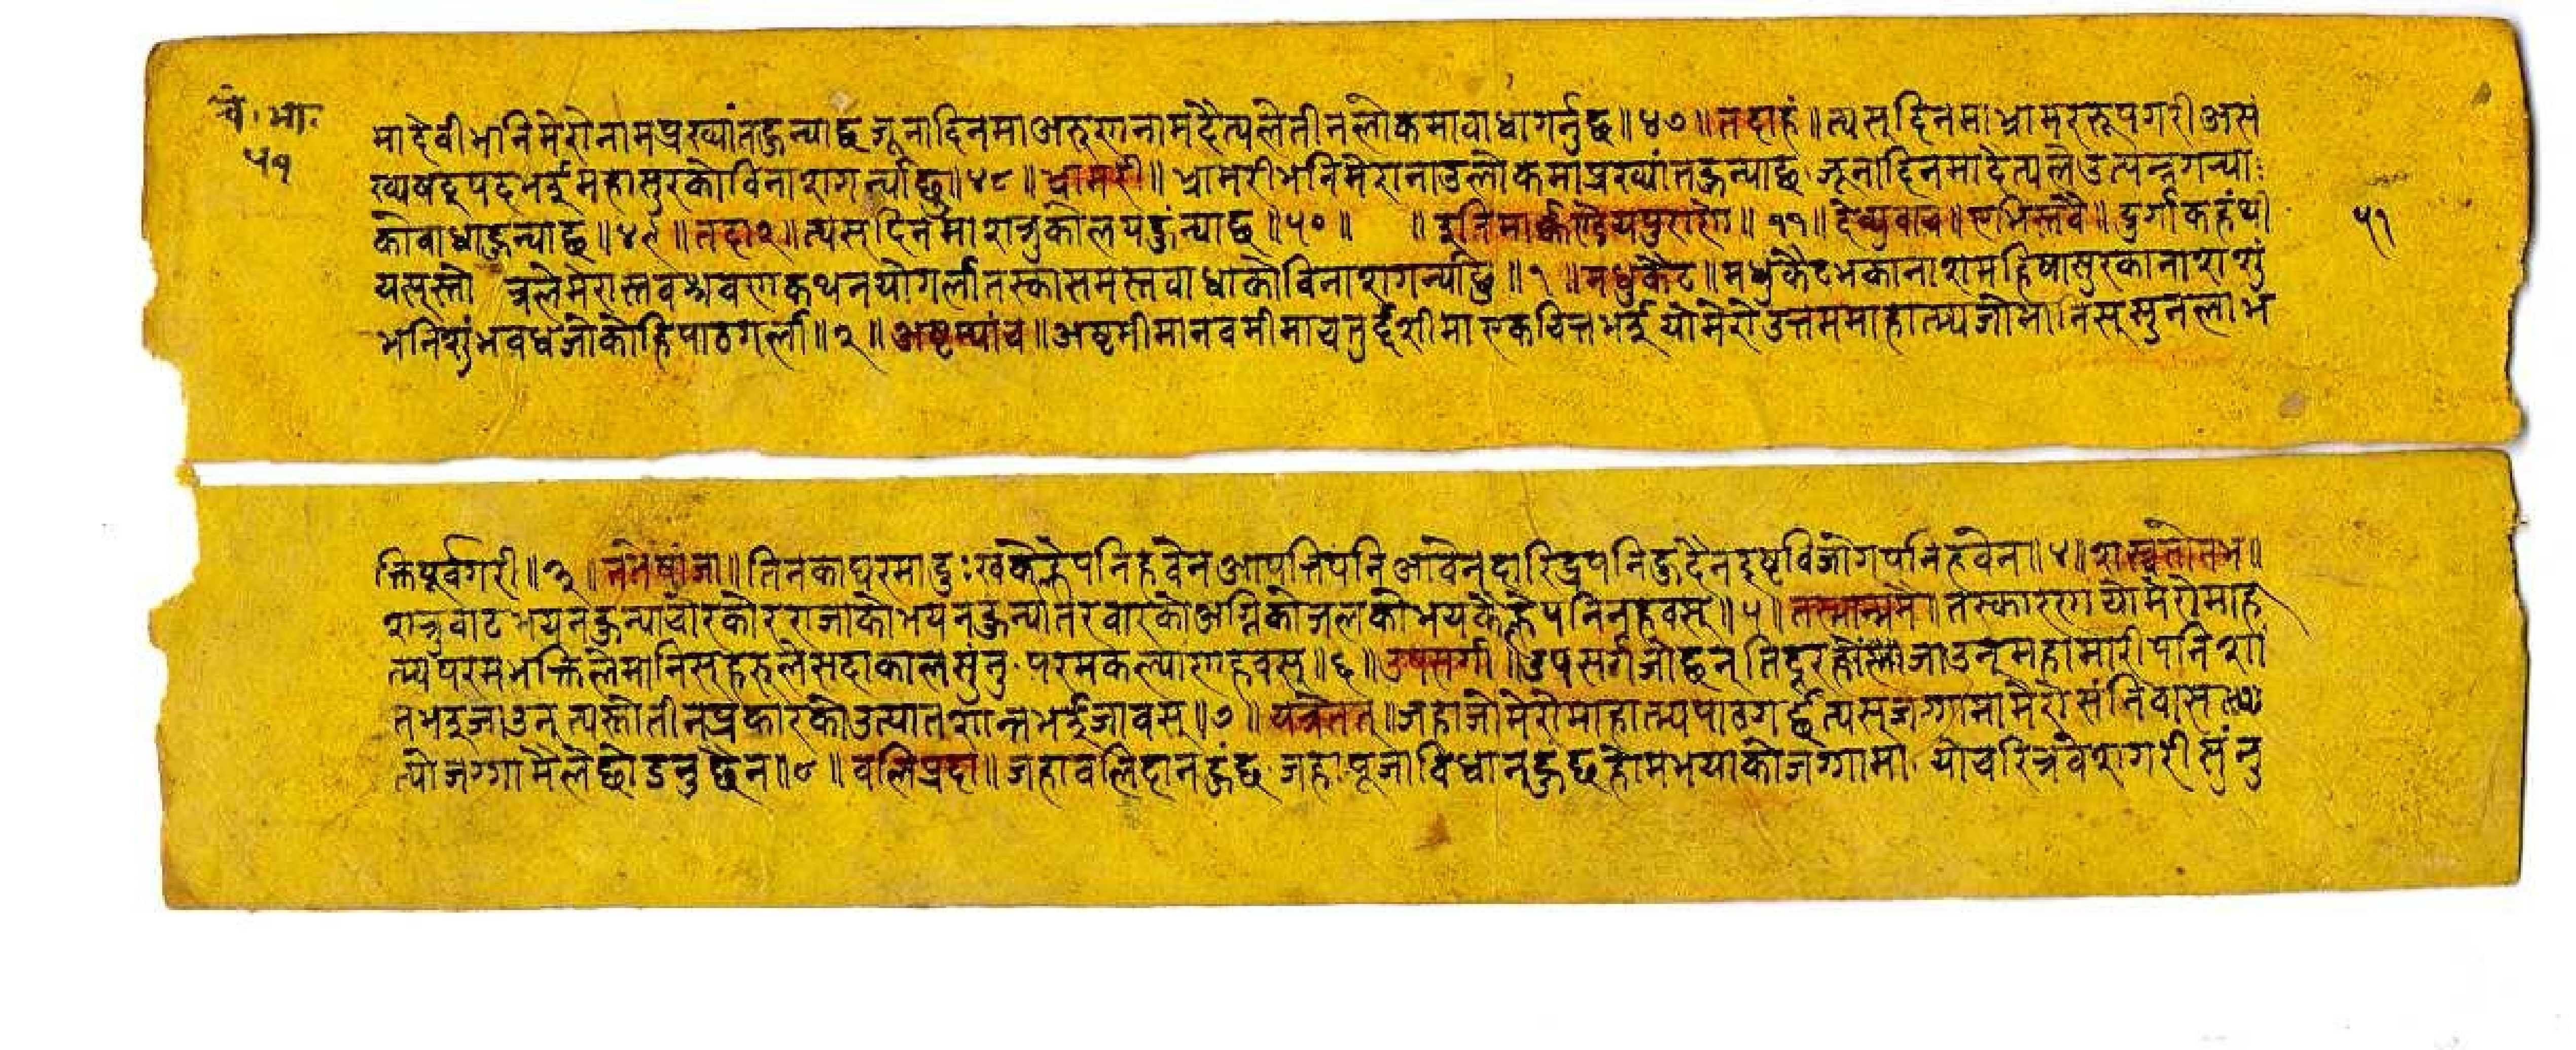 चं. भा.
५१
मा देवी भनि मेरो नाम प्रख्यांत हुन्याछ जूना दिनमा अरुण नाम दैत्यले तीन लोकमा वाधा गर्नुछ ॥ ४७ ॥ तदाहं ॥ त्यस् दिनमा भ्रामर रूप गरी असं
ख्य षट्पद भई महासुरको विनाश गर्न्याछु ॥ ४८ ॥ भ्रामरी ॥ भ्रामरी भनि मेरा नाउ लोकमा प्रख्यांत हुन्याछ जूना दिनमा दैत्यले उत्पन्न गन्या
को वाधा हुन्याछ ॥ ४९ ॥ तदा २ ॥ त्यस् दिनमा शत्रुको लय हुंन्याछ ॥ ५० ॥ ॥ इति मार्कण्डेयपुराणे ॥ ११ ॥ देव्युवाच ॥ एभिस्तवै ॥ दुर्गा कहंथी
५१
यस् स्तोत्रले मेरा स्तव श्रवण कथन यो गर्ला तस्का समस्त वाधाको विनाश गर्न्याछु ॥ १ ॥ मधुकैट ॥ मधुकैटभका नाश महिषासुरका नाश शुं
भ निशुंभ वध जो कोहि पाठ गर्ला ॥ २ ॥ अष्टम्यांच ॥ अष्टमीमा नवमीमा चतुर्द्दशीमा एकचित्त भई यो मेरो उत्तम माहात्म्य जो मानिस् सुनला भ
क्तिपूर्व गरी ॥ ३ ॥ नतेषांजा ॥ तिनका घरमा दुःख कैल्हे पनि हवैन आपत्ति पनि आवैन दारिद्र पनि हुदैन इष्ट विजोग पनि हवैन ॥ ४ ॥ शत्रुतोनभ ॥
शत्रुवाट भय न हुन्या चोरको र राजाको भय न हुन्या तरवारको अग्निको जलको भय कैल्हे पनि न हवस् ॥ ५ ॥ तस्मान्ममै ॥ तस्कारण यो मेरो माहा
त्म्य परम भक्तिले मानिस्हरुले सदाकाल सुंनु परम कल्याण हवस् ॥ ६ ॥ उपसर्गा ॥ उपसर्ग जो छन् ति दुर जाउन् महामारी पनि शां
त भइ जाउन् त्यस्तो तीन प्रकारको उत्पात शान्त भई जावस् ॥ ७ ॥ यत्रैतत् ॥ जहा जो मेरो माहात्म्य पाठ गर्छ त्यस् जग्गामा मेरो संनिवास
त्यो जग्गा मैले छोडनु छैन ॥ ८ ॥ वलिप्रदा ॥ जहा वलिदान हुंछ जहा पूजा विधान् हुछ होम भयाको जग्गामा यो चरित्र वेश गरी सुंनु